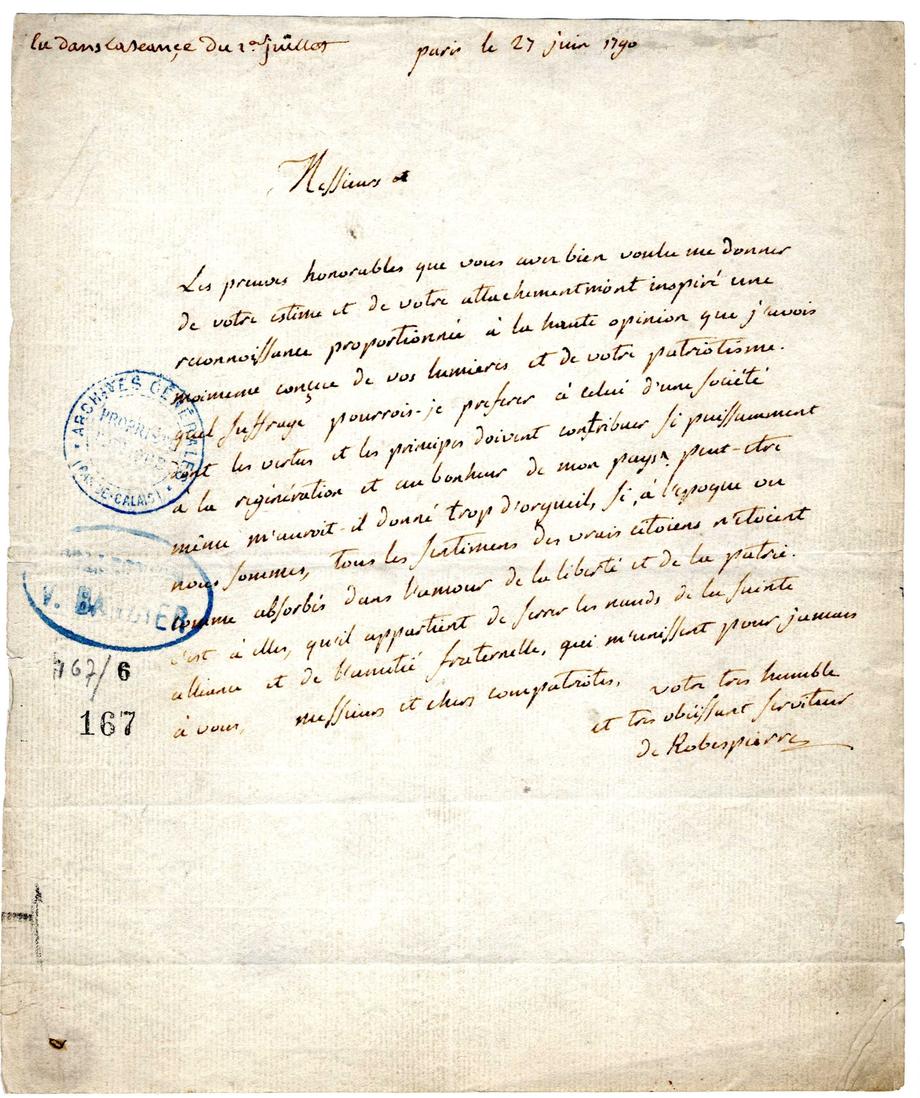 lu dans la seance du 1er juillet
paris le 27 juin 1790
Messieurs
Les preuves honorables que vous avez bien voulu me donner
de votre estime et de votre attachement m'ont inspiré une
reconnoissance proportionnée à la haute opinion que j'avois
moimeme conçue de vos lumieres et de votre patriotisme.
quel suffrage pourrois-je preferer à celui d'une société
dont les vertus et les principes doivent contribuer si puissamment
à la régénération et au bonheur de mon pays. peut-etre
même m'auroit-il donné trop d'orgueil, si, à l'epoque ou
nous sommes, tous les sentimens des vrais citoiens n'étoient
comme absorbés dans l'amour de la liberté et de la patrie.
c'est à elles, qu'il appartient de serrer les nœuds de la sainte
alliance et de l'amitié fraternelle, qui m'unissent pour jamais
à vous, messieurs et chers compatriotes. votre tres humble
et tres obéissant serviteur
de Robespierre
ARCHIVES GÉNÉRALES
PROPRIÉTÉ
PUBLIQUE
(PAS-DE-CALAIS)
COLLECTION
V. BARBIER
167/6
167